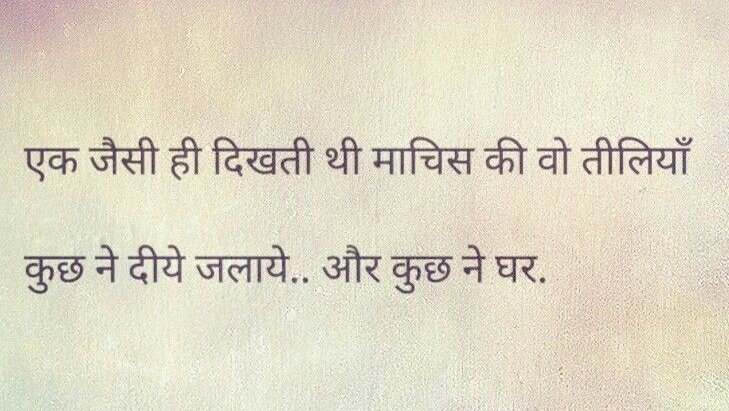 एक जैसी ही दिखती थी माचिस की वो तीलियाँ
कुछ ने दीये जलाये.. और कुछ ने घर.